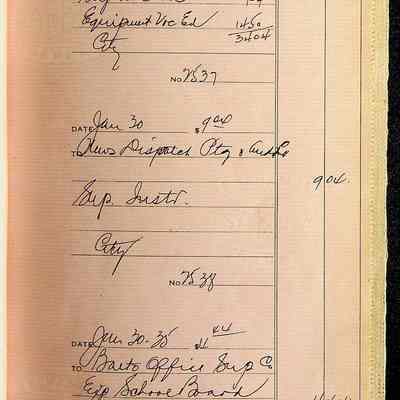 Equipment Voc Ed 14 50
City 34 04
No 7537
DATE Jan 30 $9 04
TO News Dispatch Ptg & Aud Co
9 04.
Sup. Instr.
City
No 7538
DATE Jan 30-35 $ 44
TO Barts Office Sup Co
Exp School Board